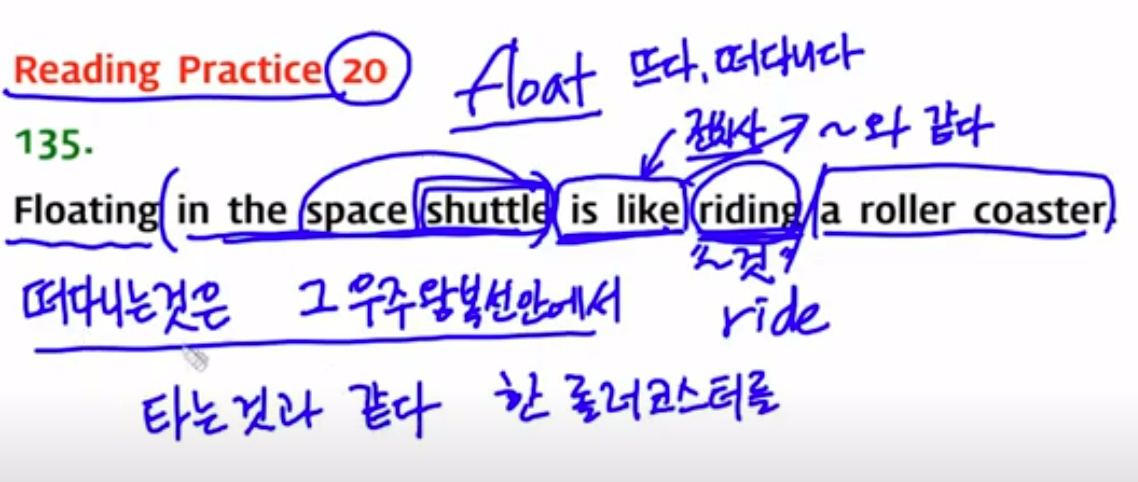 Reading Practice 20
float 뜨다, 떠다니다
135.
전치사 ~와 같다
Floating (in the space shuttle) is like riding a roller coaster.
"~것"
떠다니는것은 그 우주왕복선안에서
ride
타는것과 같다 한 롤러코스터를